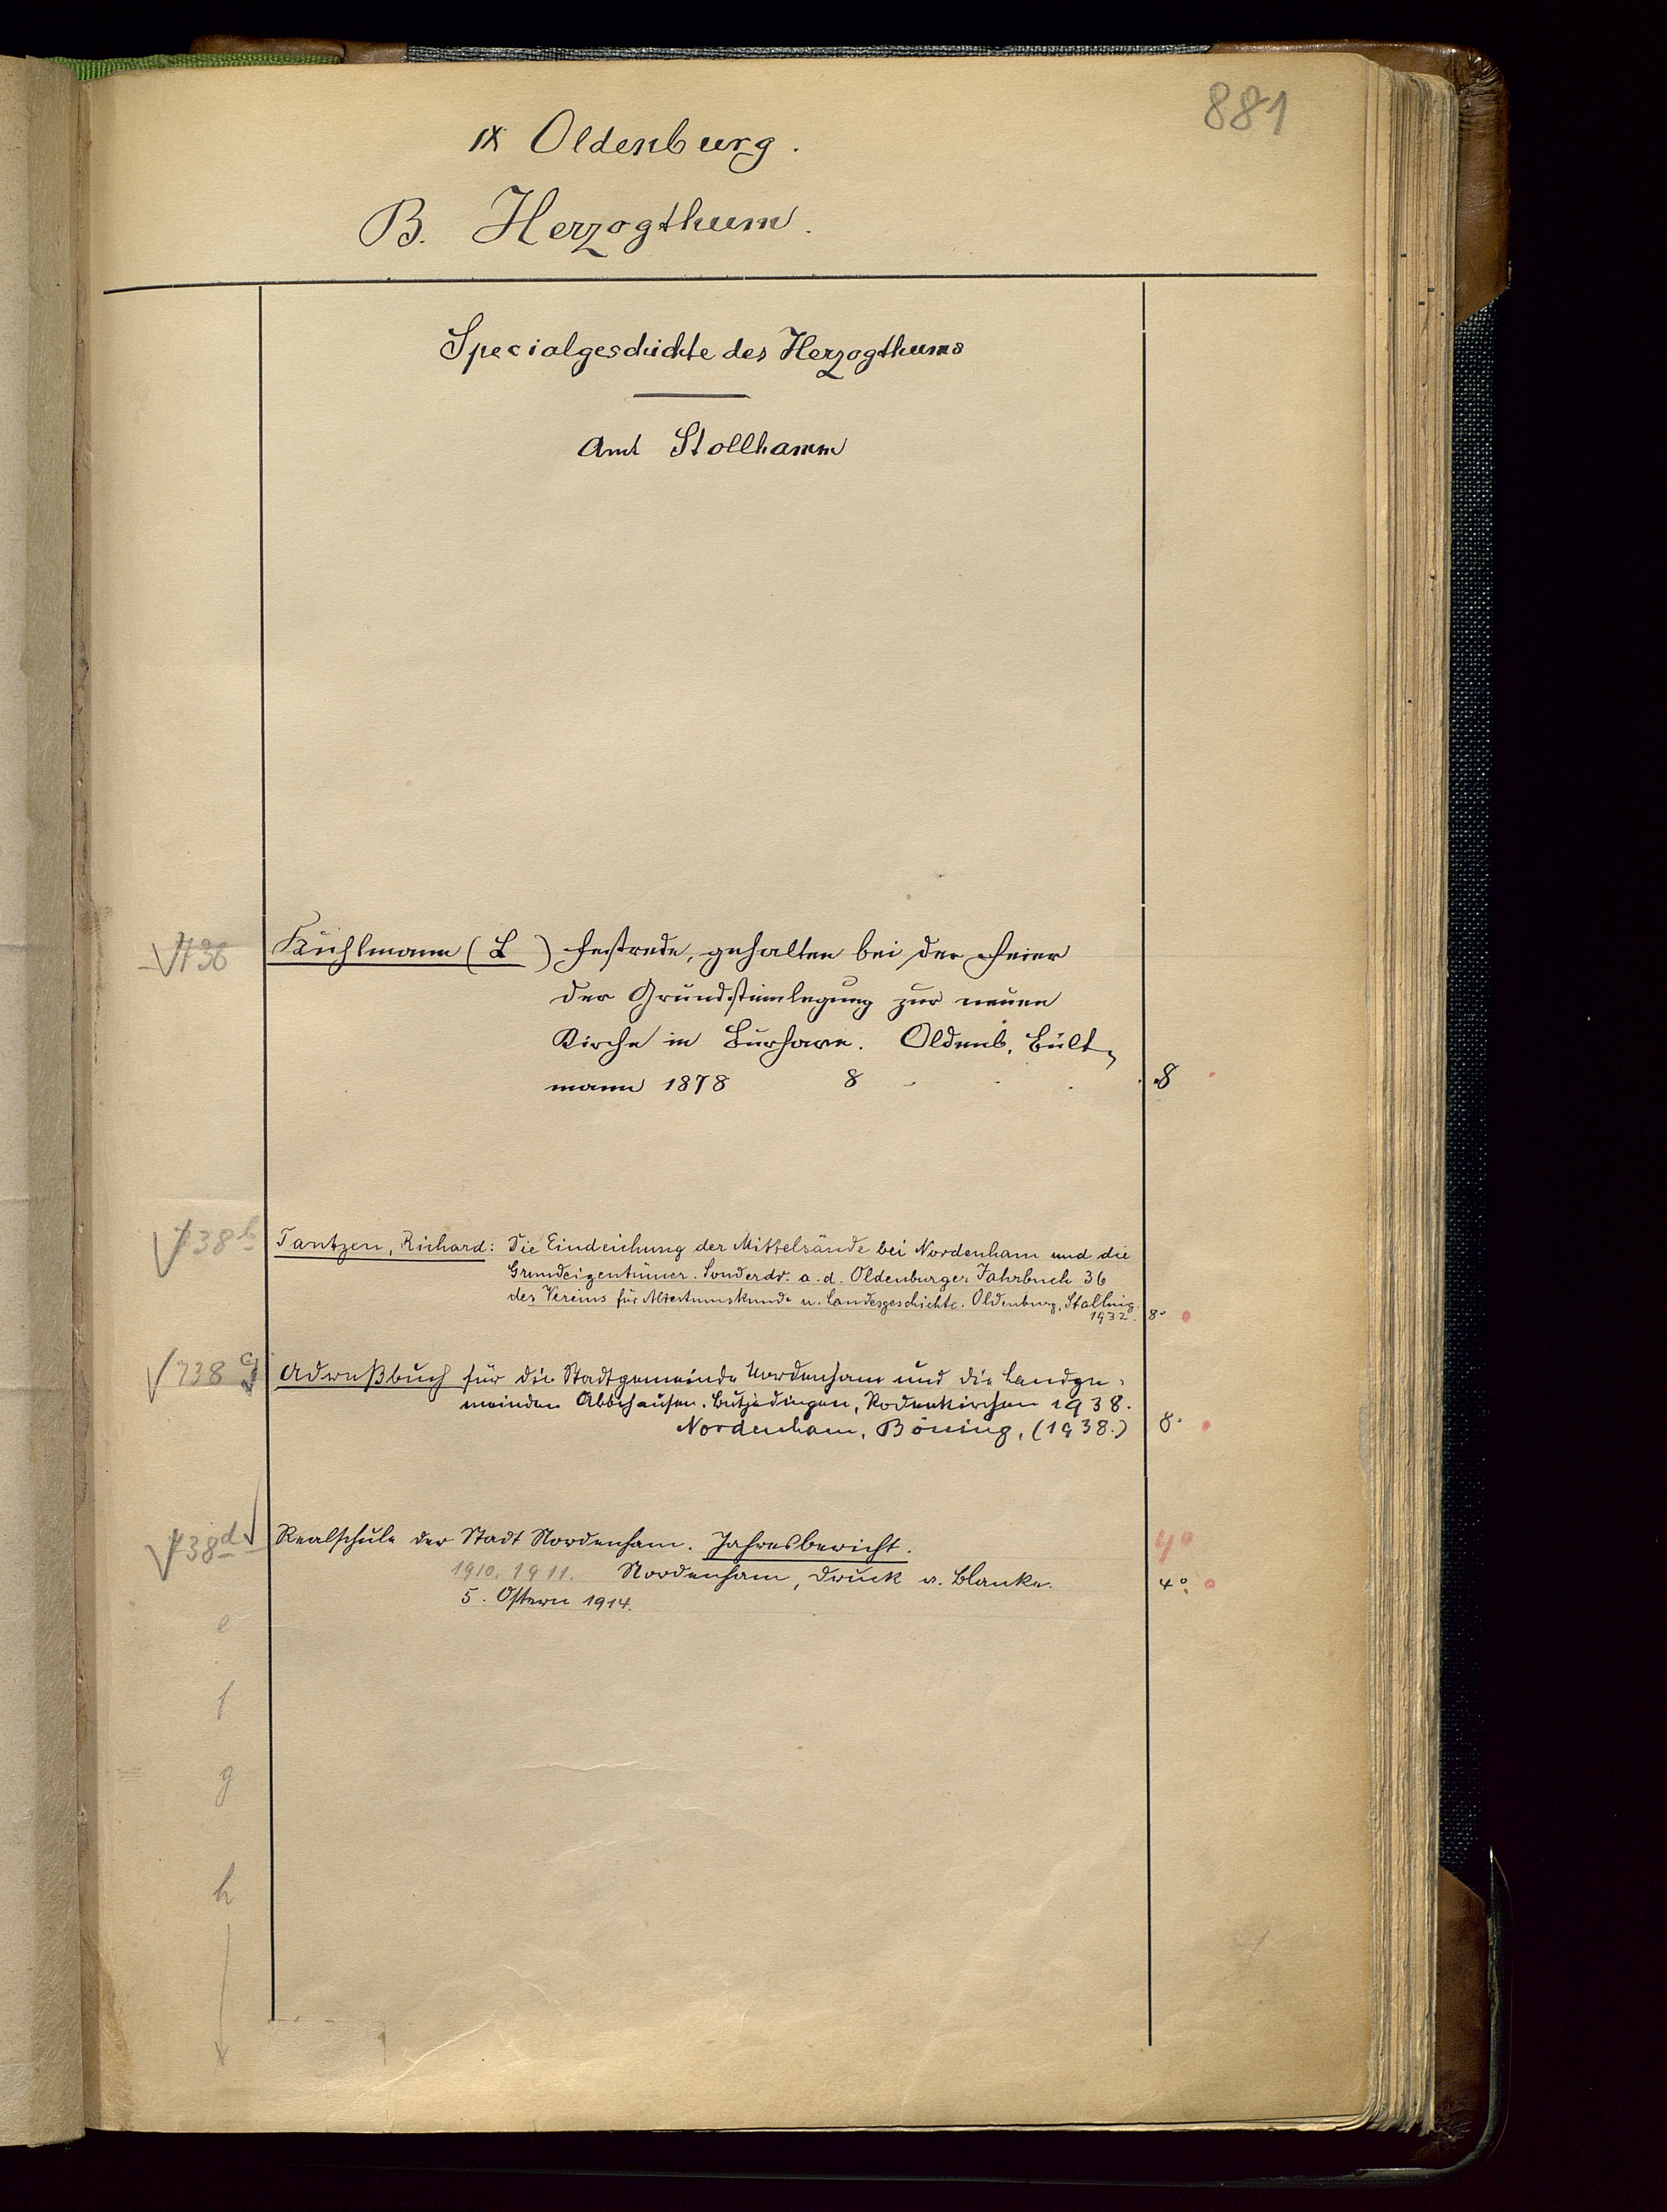 881
IX Oldenburg.
B. Herzogthum.
Specialgeschichte des Herzogthums
Amt Stollhamm
738 Kühlmann (L ) Festrede, gehalten bei der Feier
der Grundsteinlegung zur neuen
Kirche in Burhave. Oldenb. Bült-
mann 1878 8 8
738b Tantzen, Richard: Die Eindeichung der Mittelsände bei Nordenham und die
Grundeigentümer. Sonderdr. a. d. Oldenburger Jahrbuch 36
des Vereins für Altertumskunde u. Landesgeschichte. Oldenburg, Stalling
1932. 8°
738c Adreßbuch für die Stadtgemeinde Nordenham und die Landge-
meinden Abbehausen, Butjadingen, Rodenkirchen 1938.
Nordenham, Böning, (1938.) 8°
738d Realschule der Stadt Nordenham. Jahresbericht. 4°
1910. 1911. Nordenham, Druck v. Blanke. 4°
5. Ostern 1914.
e
f
g
h